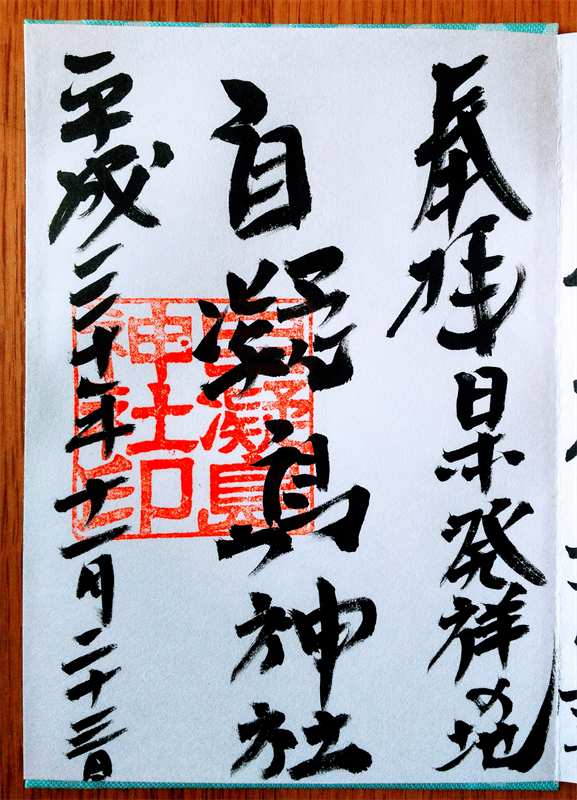 奉拝 日本発祥の地
自凝島神社
平成三十年十一月二十三日
自凝島
神社印